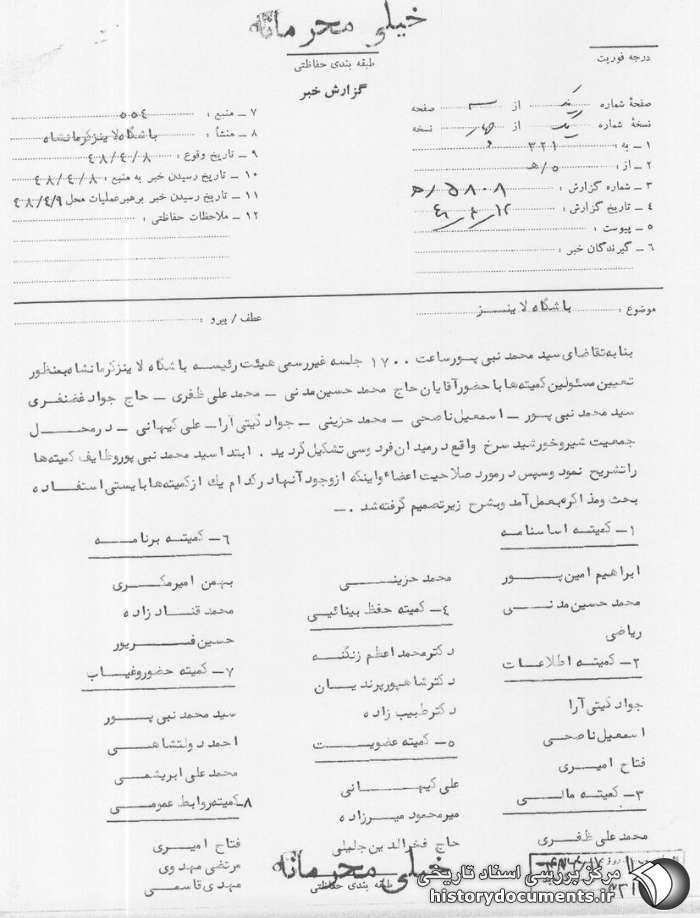 خیلی محرمانه
طبقه بندی حفاظتی
درجه فوریت
گزارش خبر
صفحهٔ شماره یک از ۳ صفحه
نسخهٔ شماره یک از چهار نسخه
۱ – به : ۳۲۱
۲ – از : ۵/ھ
۳ – شماره گزارش : ۵۸۰۸/ھ
۴ – تاریخ گزارش : ۴۸/۴/۱۲
۵ – پیوست :
۶ – گیرندگان خبر :
۷ – منبع : ۵۵۴
۸ – منشأ : باشگاه لاینز کرمانشاه
۹ – تاریخ وقوع : ۴۸/۴/۸
۱۰ – تاریخ رسیدن خبر به منبع : ۴۸/۴/۸
۱۱ – تاریخ رسیدن خبر برهبر عملیات محل ۴۸/۴/۹
۱۲ – ملاحظات حفاظتی :
موضوع : باشگاه لاینــز
عطف / پیرو :
بنا به تقاضای سید محمد نبی پور ساعت ۱۷۰۰ جلسه غیررسمی هیئت رئیسه باشگاه لاینز کرمانشاه بمنظور
تعیین مسئولین کمیته‌ها با حضور آقایان حاج محمد حسین مدنی – محمد علی ظفری – حاج جواد غضنفری
سید محمد نبی پور – اسمعیل ناصحی – محمد حزینی – جواد گیتی آرا – علی کیهانی – در محل
جمعیت شیر و خورشید سرخ واقع در میدان فردوسی تشکیل گردید . ابتدا سید محمد نبی پور وظایف کمیته‌ها
را تشریح نمود و سپس در مورد صلاحیت اعضاء و اینکه از وجود آنها در کدام یك از کمیته‌ها بایستی استفاده
بحث و مذاکره بعمل آمد و بشرح زیر تصمیم گرفته شد . –
۱– کمیته اساسنامه
ابراهیم امین پور
محمد حسین مدنی
ریاضی
۲– کمیته اطلاعات
جواد گیتی آرا
اسمعیل ناصحی
فتاح امیری
۳– کمیته مالی
محمد علی ظفری
محمد حزینی
۴– کمیته حفظ بینائی
دکتر محمد اعظم زنگنه
دکتر شاهپور پرندیان
دکتر طبیب زاده
۵– کمیته عضویت
علی کیهانی
میر محمود میرزاده
حاج فخرالدین جلیلی
۶– کمیته برنامه
بهمن امیر مکری
محمد قناد زاده
حسین فریور
۷– کمیته حضور و غیاب
سید محمد نبی پور
احمد دولتشاهی
محمد علی ابریشمی
۸–کمیته روابط عمومی
فتاح امیری
مرتضی مهدوی
مهدی قاسمی
خیلی محرمانه
طبقه بندی حفاظتی
مرکز بررسی اسناد تاریخی
historydocuments.ir